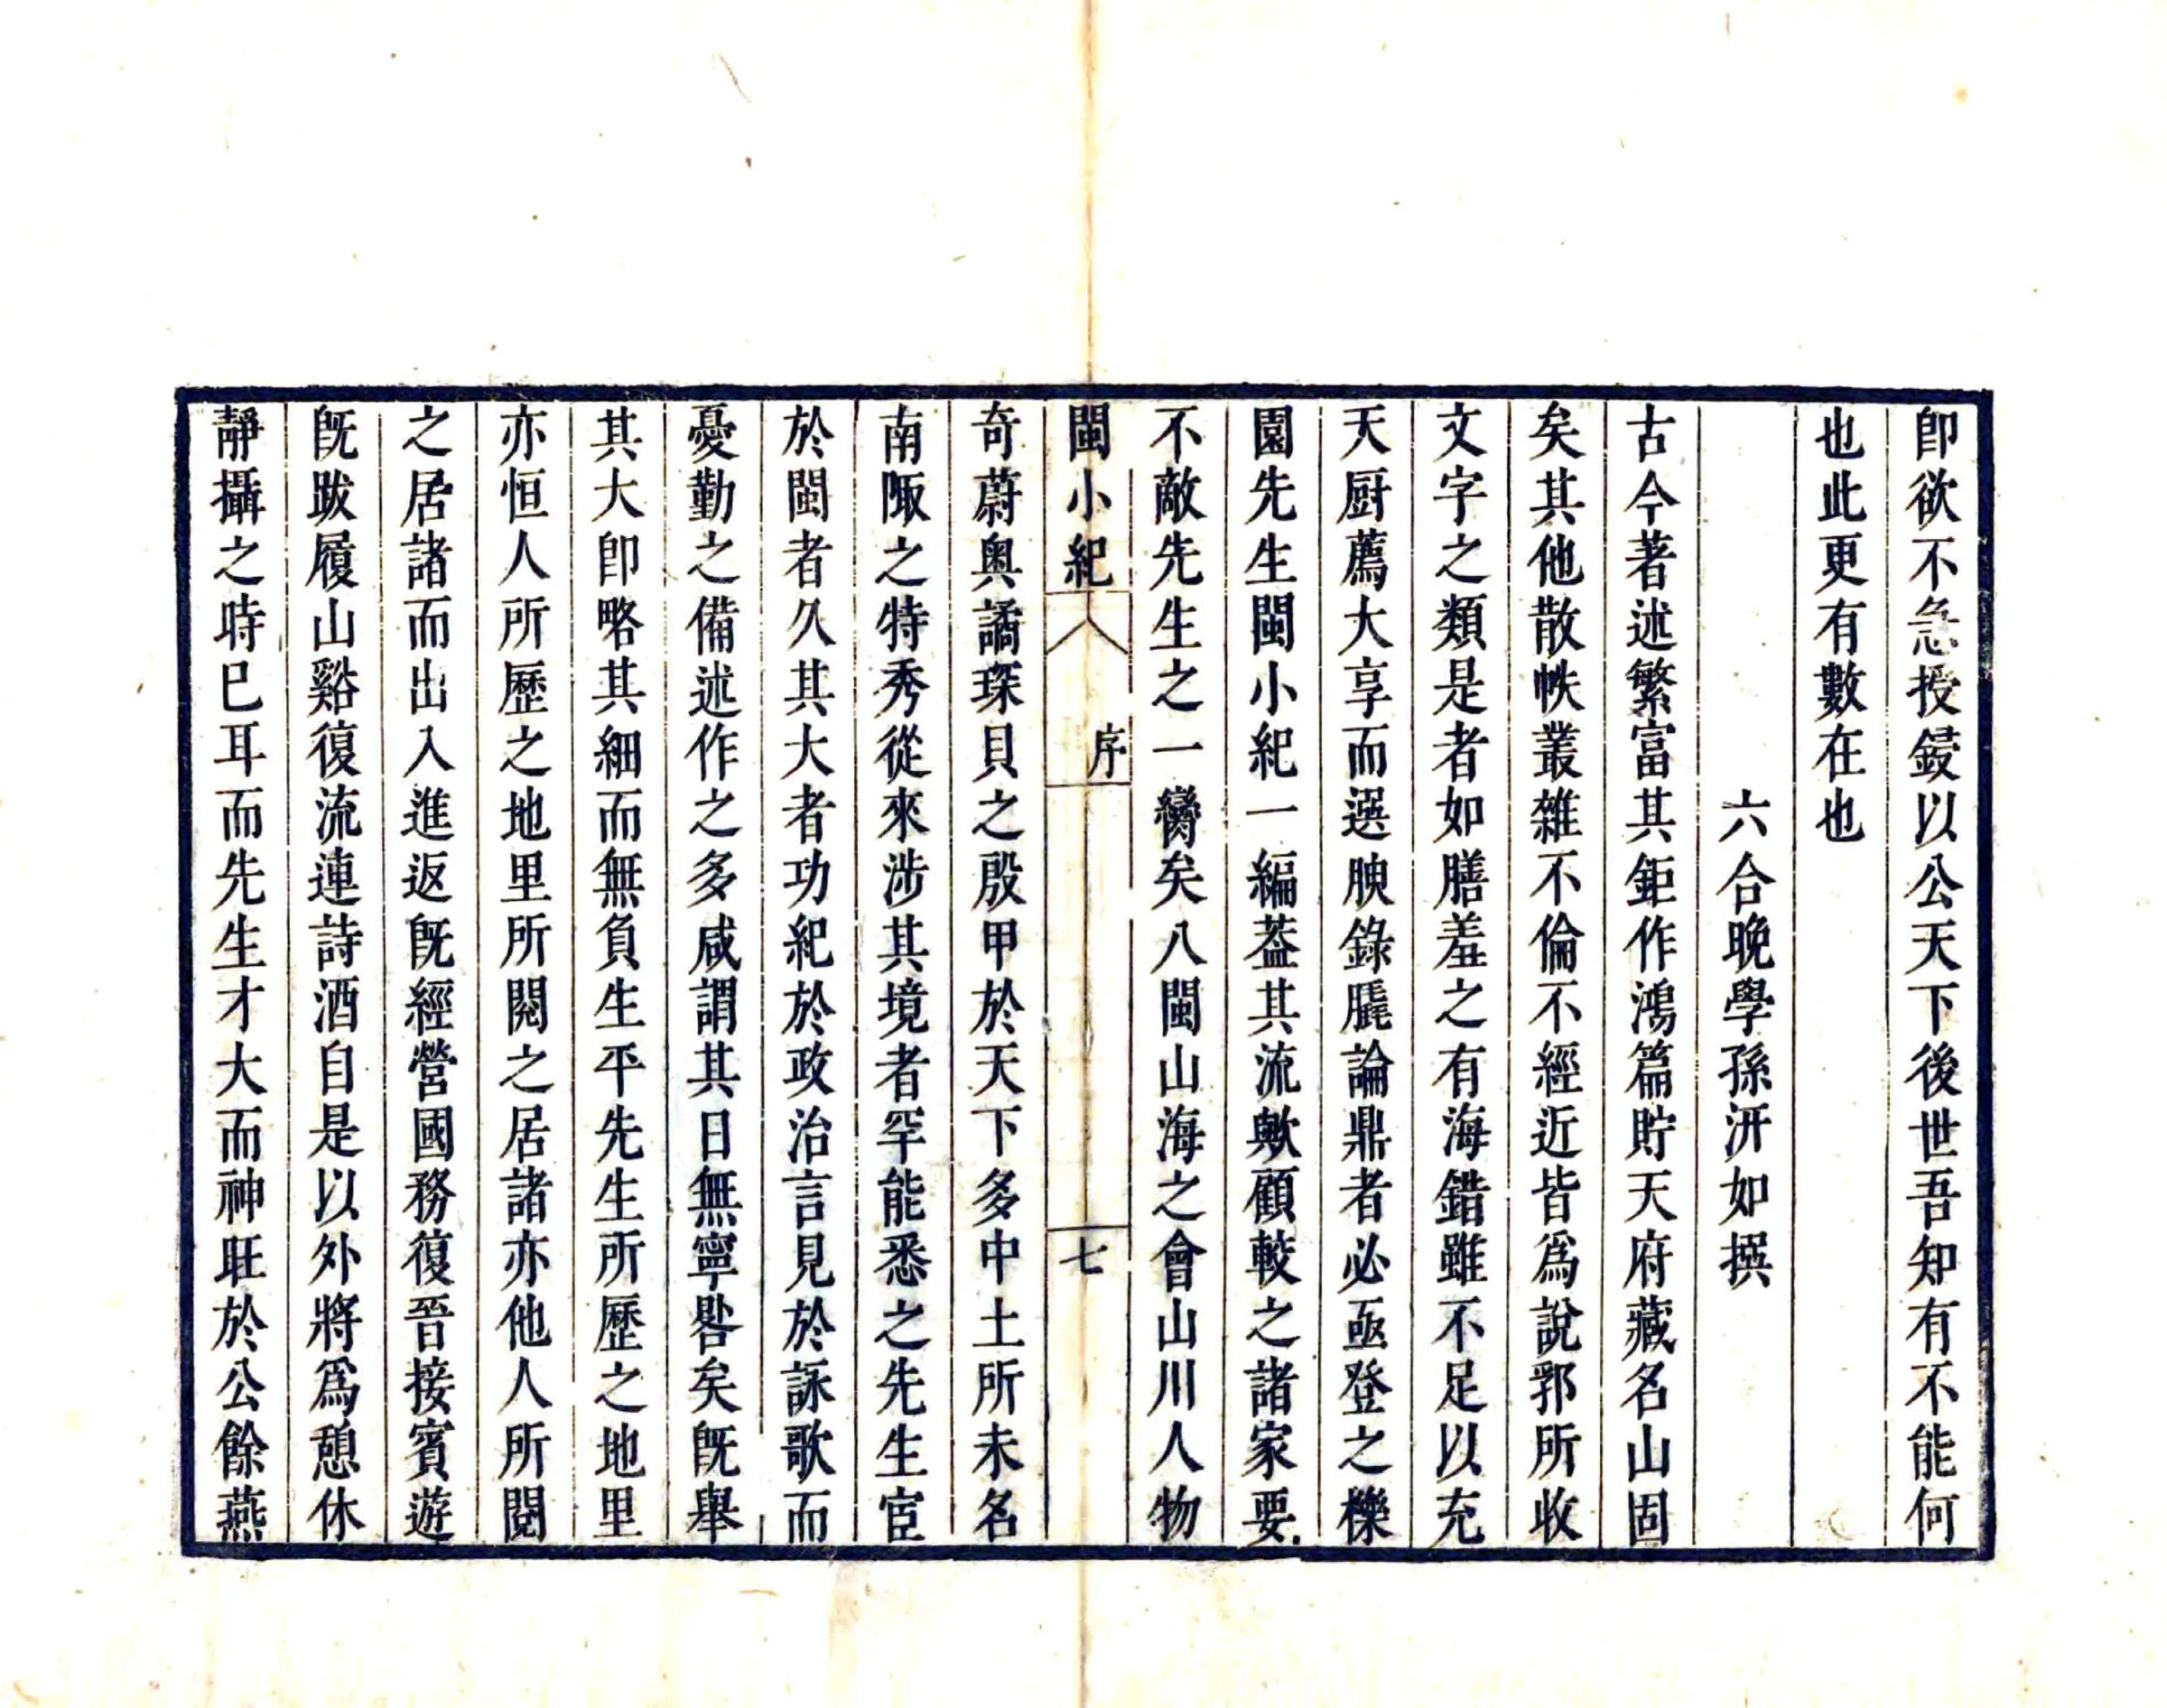 卽欲不急授鋟以公天下後世吾知有不能何
也此更有數在也
六合晚學孫汧如撰
古今著述繁富其鉅作鴻篇貯天府藏名山固
矣其他散帙叢雜不倫不經近皆爲說郛所收
文字之類是者如膳羞之有海錯雖不足以充
天厨薦大享而選腴錄毳論鼎者必亟登之櫟
園先生閩小紀一編葢其流歟顧較之諸家要
不敵先生之一臠矣八閩山海之會山川人物
閩小紀
序
七
奇蔚奥譎琛貝之殷甲於天下多中土所未名
南陬之特秀從來涉其境者罕能悉之先生宦
於閩者久其大者功紀於政治言見於詠歌而
憂勤之備述作之多咸謂其日無寧晷矣旣舉
其大卽略其細而無負生平先生所歷之地里
亦恒人所歷之地里所閱之居諸亦他人所閱
之居諸而出入進返旣經營國務復晉接賓遊
旣跋履山谿復流連詩酒自是以外將爲憩休
靜攝之時巳耳而先生才大而神旺於公餘燕